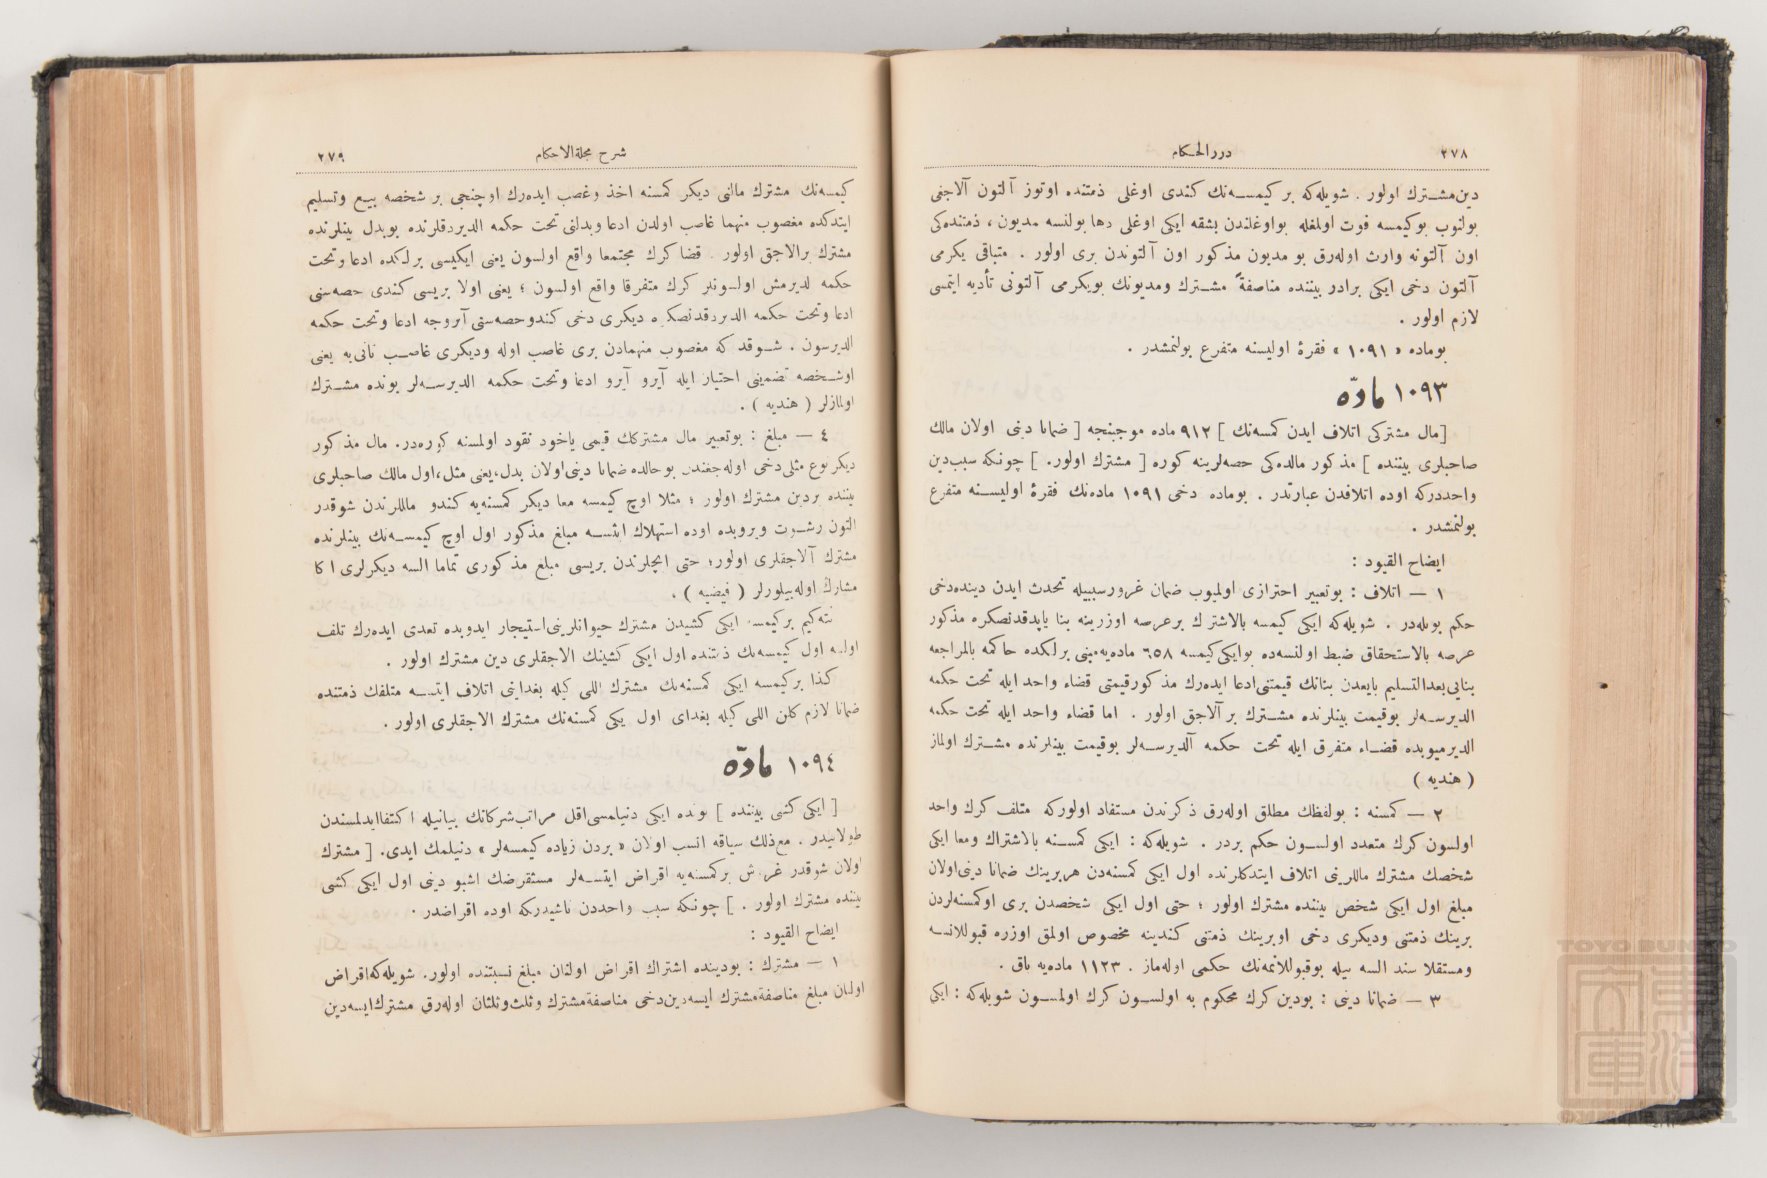 ٢٧٨
دررالحكام
دين مشترك اولور . شويله‌كه بر كيمسه‌نك كندى اوغلى ذمتنده اوتوز آلتون آلاجغى
بولنوب بوكيمسه فوت اولمغله بواوغلندن بشقه ايكى اوغلى دها بولنسه مديون ، ذمتنده‌كى
اون آلتونه وارث اوله‌رق بو مديون مذكور اون آلتوندن برى اولور . متباقى يكرمى
آلتون دخى ايكى برادر بيننده مناصفةً مشترك ومديونك بويكرمى آلتونى تأديه ايتمسى
لازم اولور .
بوماده « ١٠٩١ » فقرۀ اوليسنه متفرع بولنمشدر .
١٠٩٣ مادّه
[ مال مشتركى اتلاف ايدن كمسه‌نك ] ٩١٢ ماده موجبنجه [ ضمانا دينى اولان مالك
صاحبلرى بيننده ] مذكور مالده‌كى حصه‌لرينه كوره [ مشترك اولور. ] چونكه سبب دين
واحددركه اوده اتلافدن عبارتدر . بوماده دخى ١٠٩١ ماده‌نك فقرۀ اوليسنه متفرع
بولنمشدر .
ايضاح القيود :
١ — اتلاف : بوتعبير احترازى اولميوب ضمان غرور سببيله تحدث ايدن دينده دخى
حكم بويله‌در . شويله‌كه ايكى كيمسه بالاشتراك برعرصه اوزرينه بنا ياپدقدنصكره مذكور
عرصه بالاستحقاق ضبط اولنسه‌ده بوايكى كيمسه ٦٥٨ ماده‌يه مبنى برلكده حاكمه بالمراجعه
بنايى بعدالتسليم بايعدن بنانك قيمتنى ادعا ايده‌رك مذكور قيمتى قضاء واحد ايله تحت حكمه
الديرسه‌لر بوقيمت بينلرنده مشترك بر آلاجق اولور . اما قضاء واحد ايله تحت حكمه
الديرميوبده قضاء متفرق ايله تحت حكمه آلديرسه‌لر بوقيمت بينلرنده مشترك اولماز
( هنديه )
٢ — كمسنه : بولفظك مطلق اوله‌رق ذكرندن مستفاد اولوركه متلف كرك واحد
اولسون كرك متعدد اولسون حكم بردر . شويله‌كه : ايكى كمسنه بالاشتراك ومعا ايكى
شخصك مشترك ماللرينى اتلاف ايتدكلرنده اول ايكى كمسنه‌دن هربرينك ضمانا دينى اولان
مبلغ اول ايكى شخص بيننده مشترك اولور ؛ حتى اول ايكى شخصدن برى اوكمسنه‌لردن
برينك ذمتنى وديكرى دخى اوبرينك ذمتنى كندينه مخصوص اولمق اوزره قبوللانسه
ومستقلا سند السه بيله بوقبوللانمه‌نك حكمى اوله‌ماز . ١١٢٣ ماده‌يه باق .
٣ — ضمانا دينى : بودين كرك محكوم به اولسون كرك اولمسون شويله‌كه : ايكى
شرح مجلةالاحكام
٢٧٩
كيمسه‌نك مشترك مالنى ديكر كمسنه اخذ وغصب ايده‌رك اوچنجى بر شخصه بيع وتسليم
ايتدكده مغصوب منهما غاصب اولدن ادعا وبدلنى تحت حكمه الديردقلرنده بوبدل بينلرنده
مشترك برالاجق اولور . قضا كرك مجتمعا واقع اولسون يعنى ايكيسى برلكده ادعا وتحت
حكمه الديرمش اولسونلر كرك متفرقا واقع اولسون ؛ يعنى اولا بريسى كندى حصه‌سنى
ادعا وتحت حكمه الديردقدنصكره ديكرى دخى كندوحصه‌سنى آيروجه ادعا وتحت حكمه
الديرسون . شوقدر كه مغصوب منهمادن برى غاصب اوله وديكرى غاصب ثانى‌يه يعنى
اوشخصه تضمينى اختيار ايله آيرو آيرو ادعا وتحت حكمه الديرسه‌لر بونده مشترك
اولمازلر ( هنديه ) .
٤ — مبلغ : بوتعبير مال مشتركك قيمى ياخود نقود اولمسنه كوره‌در. مال مذكور
ديكر نوع مثلى دخى اوله‌جغندن بوحالده ضمانا دينى اولان بدل، يعنى مثل، اول مالك صاحبلرى
بيننده بردين مشترك اولور ؛ مثلا اوچ كيمسه معا ديكر كمسنه‌يه كندو ماللرندن شوقدر
التون رشوت ويروبده اوده استهلاك ايتسه مبلغ مذكور اول اوچ كيمسه‌نك بينلرنده
مشترك آلاجقلرى اولور؛ حتى ايچلرندن بريسى مبلغ مذكورى تماما السه ديكرلرى اكا
مشارك اوله‌بيلورلر ( فيضيه ) .
نته‌كيم بركيمسه ايكى كشيدن مشترك حيوانلرينى استيجار ايدوبده تعدى ايده‌رك تلف
اولسه اول كيمسه‌نك ذمتنده اول ايكى كشينك الاجقلرى دين مشترك اولور .
كذا بركيمسه ايكى كمسنه‌نك مشترك اللى كيله بغداينى اتلاف ايتسه متلفك ذمتنده
ضمانا لازم كلن اللى كيله بغداى اول ايكى كمسنه‌نك مشترك الاجقلرى اولور .
١٠٩٤ مادّه
[ ايكى كشى بيننده ] بونده ايكى دنيلمسى اقل مراتب شركاتك بيانيله اكتفا ايدلمسندن
طولاييدر . مع‌ذلك سياقه انسب اولان « بردن زياده كيمسه‌لر » دنيلمك ايدى. [ مشترك
اولان شوقدر غرش بركمسنه‌يه اقراض ايتسه‌لر مستقرضك اشبو دينى اول ايكى كشى
بيننده مشترك اولور . ] چونكه سبب واحددن ناشيدركه اوده اقراضدر .
ايضاح القيود :
١ — مشترك : بودينده اشتراك اقراض اولنان مبلغ نسبتنده اولور. شويله‌كه اقراض
اولنان مبلغ مناصفة مشترك ايسه دين دخى مناصفة مشترك وثلث وثلثان اوله‌رق مشترك ايسه دين
TOYO BUNKO